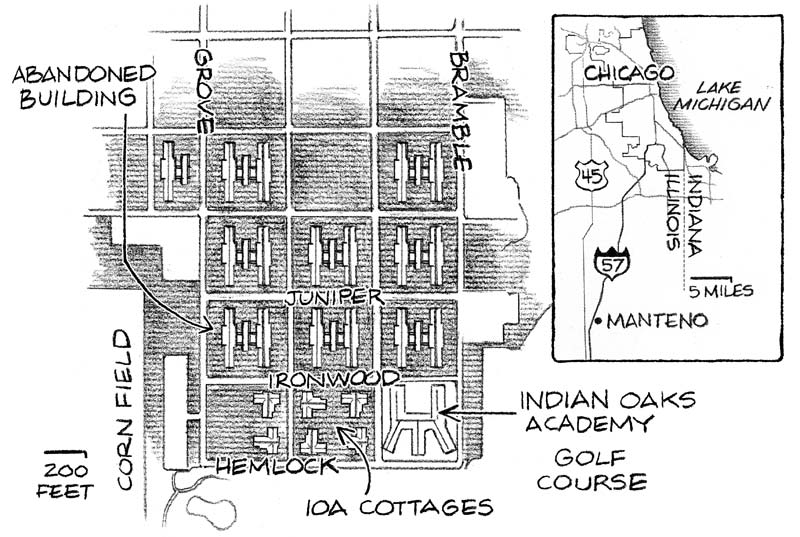 ABANDONED
BUILDING
GROVE
BRAMBLE
JUNIPER
IRONWOOD
HEMLOCK
CORN FIELD
200
FEET
IOA COTTAGES
INDIAN OAKS
ACADEMY
GOLF
COURSE
CHICAGO
LAKE
MICHIGAN
45
ILLINOIS
INDIANA
57
5 MILES
MANTENO